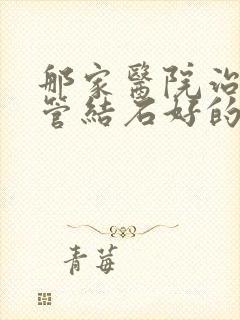 那家醫院治
管結石好的
青莓